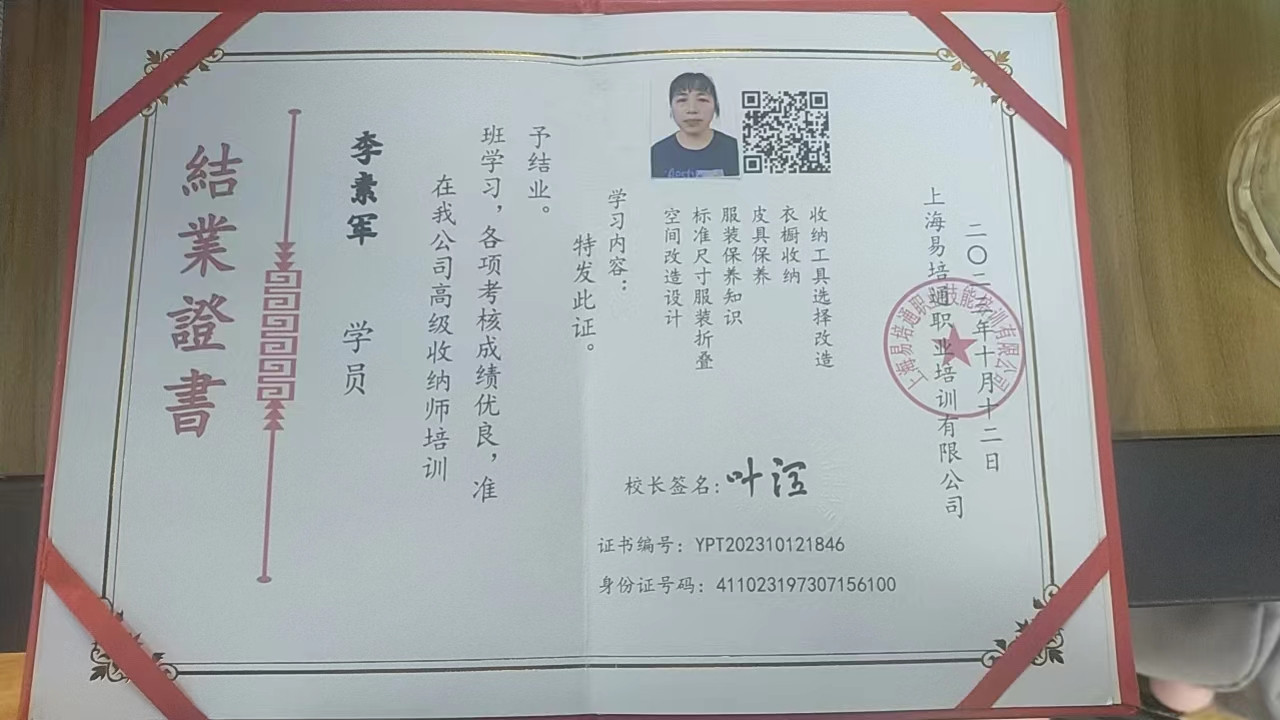 結業證書
李素军 学员
在我公司高级收纳师培训
班学习，各项考核成绩优良，准
予结业。
特发此证。
学习内容：
空间改造设计
标准尺寸服装折叠
服装保养知识
皮具保养
衣橱收纳
收纳工具选择改造
校长签名：叶
证书编号：YPT202310121846
身份证号码：411023197307156100
上海易培通职业培训有限公司
二〇二三年十月十二日
上海易培通职业技能培训有限公司